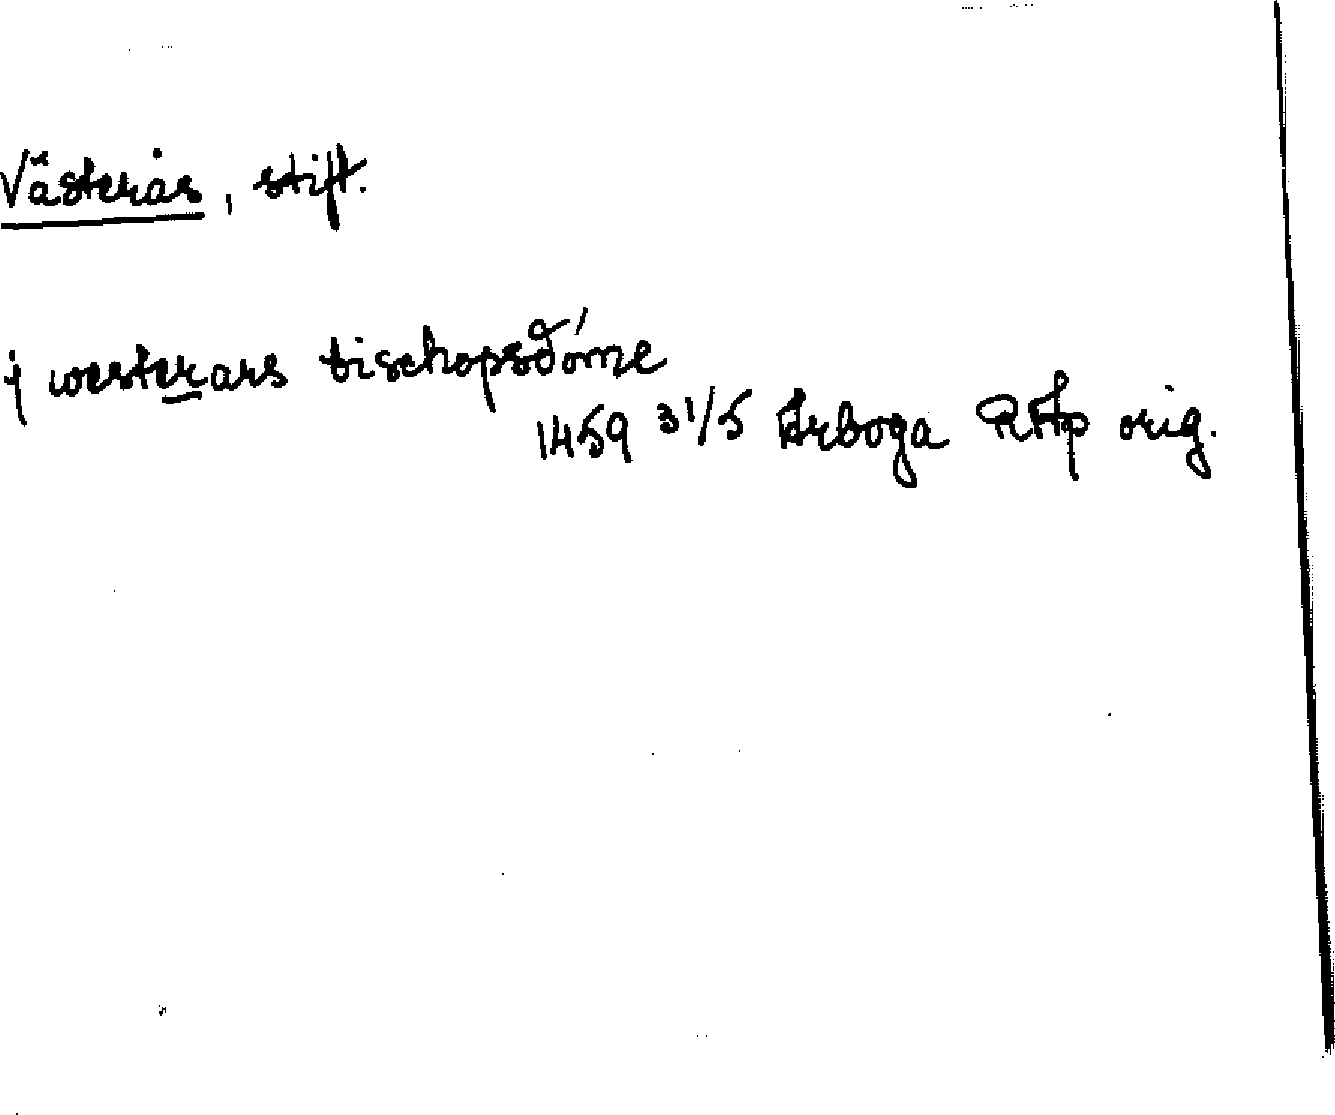 Västerås, stift.
j westerars bischopsdóme
1459 31/5 Arboga RAp orig.